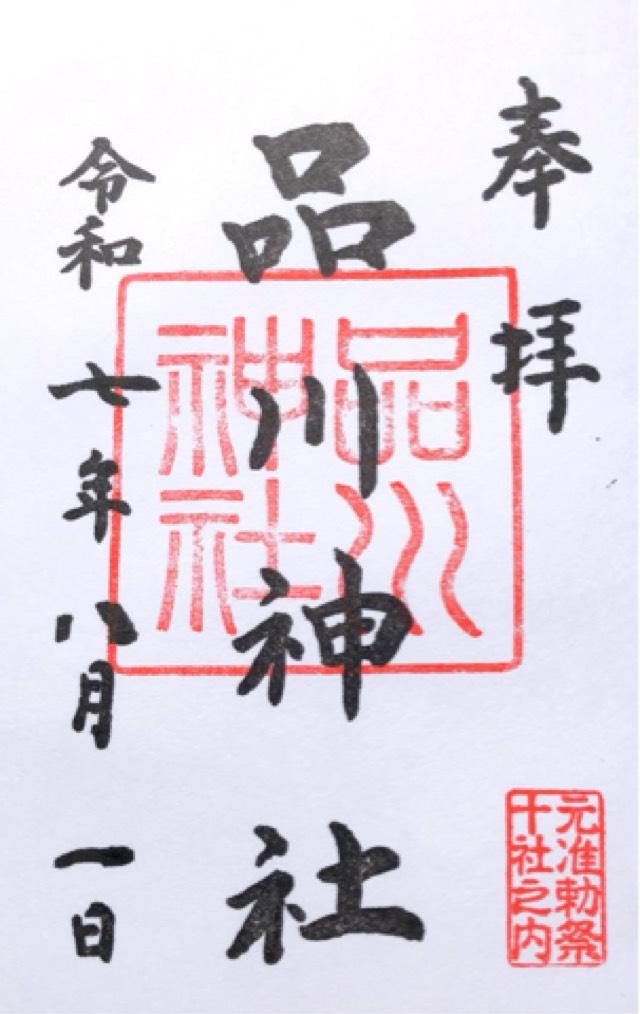 奉拝
品川神社
品川
神社
令和七年八月一日
元准勅祭
十社之内